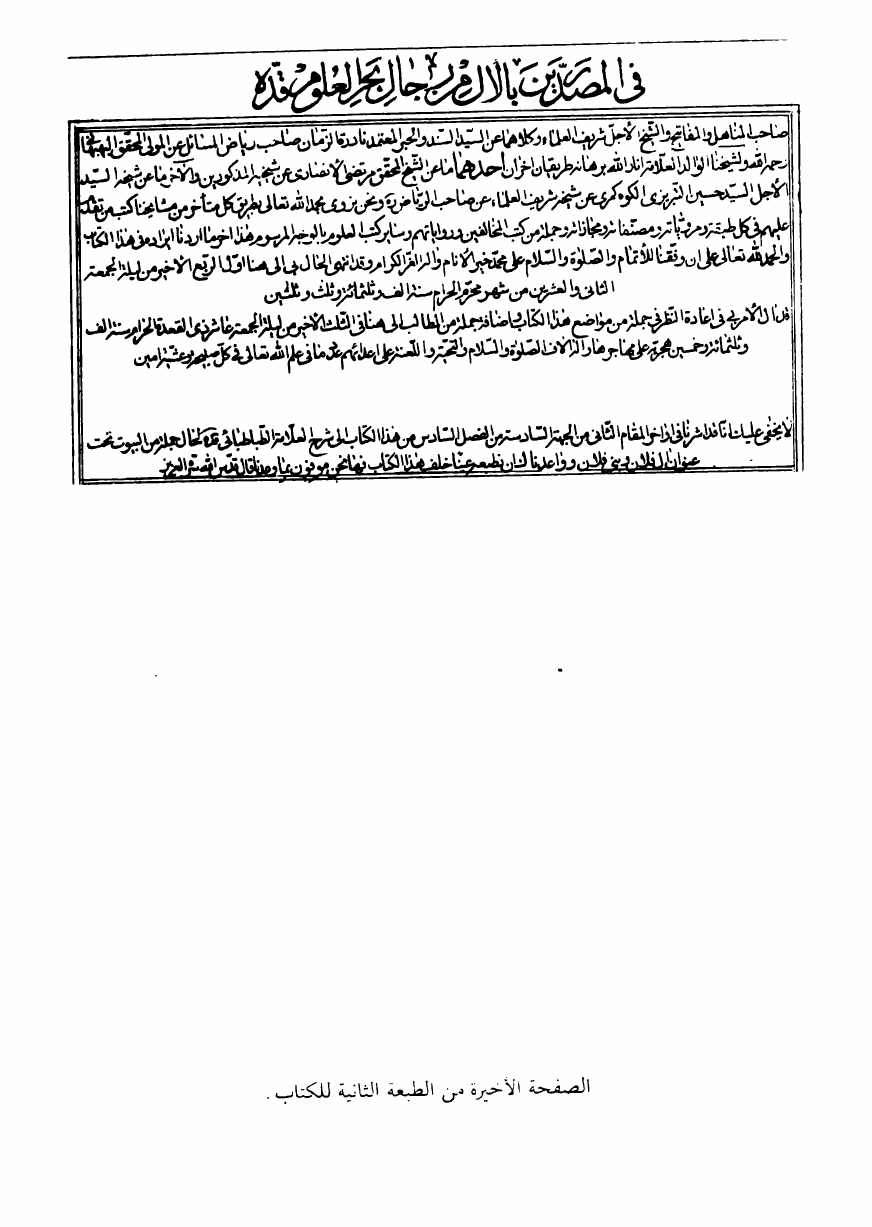 في المصدرين بالال من رجال بحر العلوم قده
صاحب المناهل والمفاتيح والشيخ الأجل شريف العلماء وكلاهما عن السيد السند والحبر المعتمد نادرة الزمان صاحب رياض المسائل عن المولى المحقق البهبهاني
رحمه الله ولشيخنا الوالد العلامة انار الله برهانه طريقان اخران أحدهما ما عن الشيخ المحقق مرتضى الانصاري عن شيخيه المذكورين والآخر ما عن شيخه السيد
الأجل السيد حسين التبريزي الكوه كمري عن شيخه شريف العلماء عن صاحب الرياض ونحن نروي بحمد الله تعالى بطريق كل متأخر من مشايخنا كتب من تقدم
عليهم في كل طبقة ومروياته ومصنفاته ومجازاته وجملة من كتب المخالفين ورواياتهم وساير كتب العلوم بالوجه المرسوم هذا اخر ما اردنا ايراده في هذا الكتاب
والحمد لله تعالى على ان وفقنا للأتمام والصلوة والسلام على محمد خير الأنام وآله الغر الكرام وقد انتهى الحال بي الى هنا اول الربع الأخير من ليلة الجمعة
الثاني والعشرين من شهر محرم الحرام سنة الف وثلثمائة وثلث وثلثين
قد ال الأمر بي في اعادة النظر في جملة من مواضع هذا الكتاب باضافة جملة من المطالب الى هنا في الثلث الأخير من ليلة الجمعة عاشر ذي القعدة الحرام سنة الف
وثلثمائة وخمسين هجرية على مهاجرها وآله الاف الصلوة والسلام والتحية واللعنة على اعدائهم عدد ما في علم الله تعالى في كل صبيحة وعشية امين
لا يخفى عليك انا قد اشرنا في اواخر المقام الثاني من الجهة السادسة من الفصل السادس من هذا الكتاب الى شرح العلامة الطباطبائي قده لحال جملة من البيوت تحت
عنوان ال فلان وبني فلان وواعدناك ان نطبعه عينا خلف هذا الكتاب فها نحن موفون بما وعدنا قال قدس الله سره العزيز
الصفحة الأخيرة من الطبعة الثانية للكتاب .